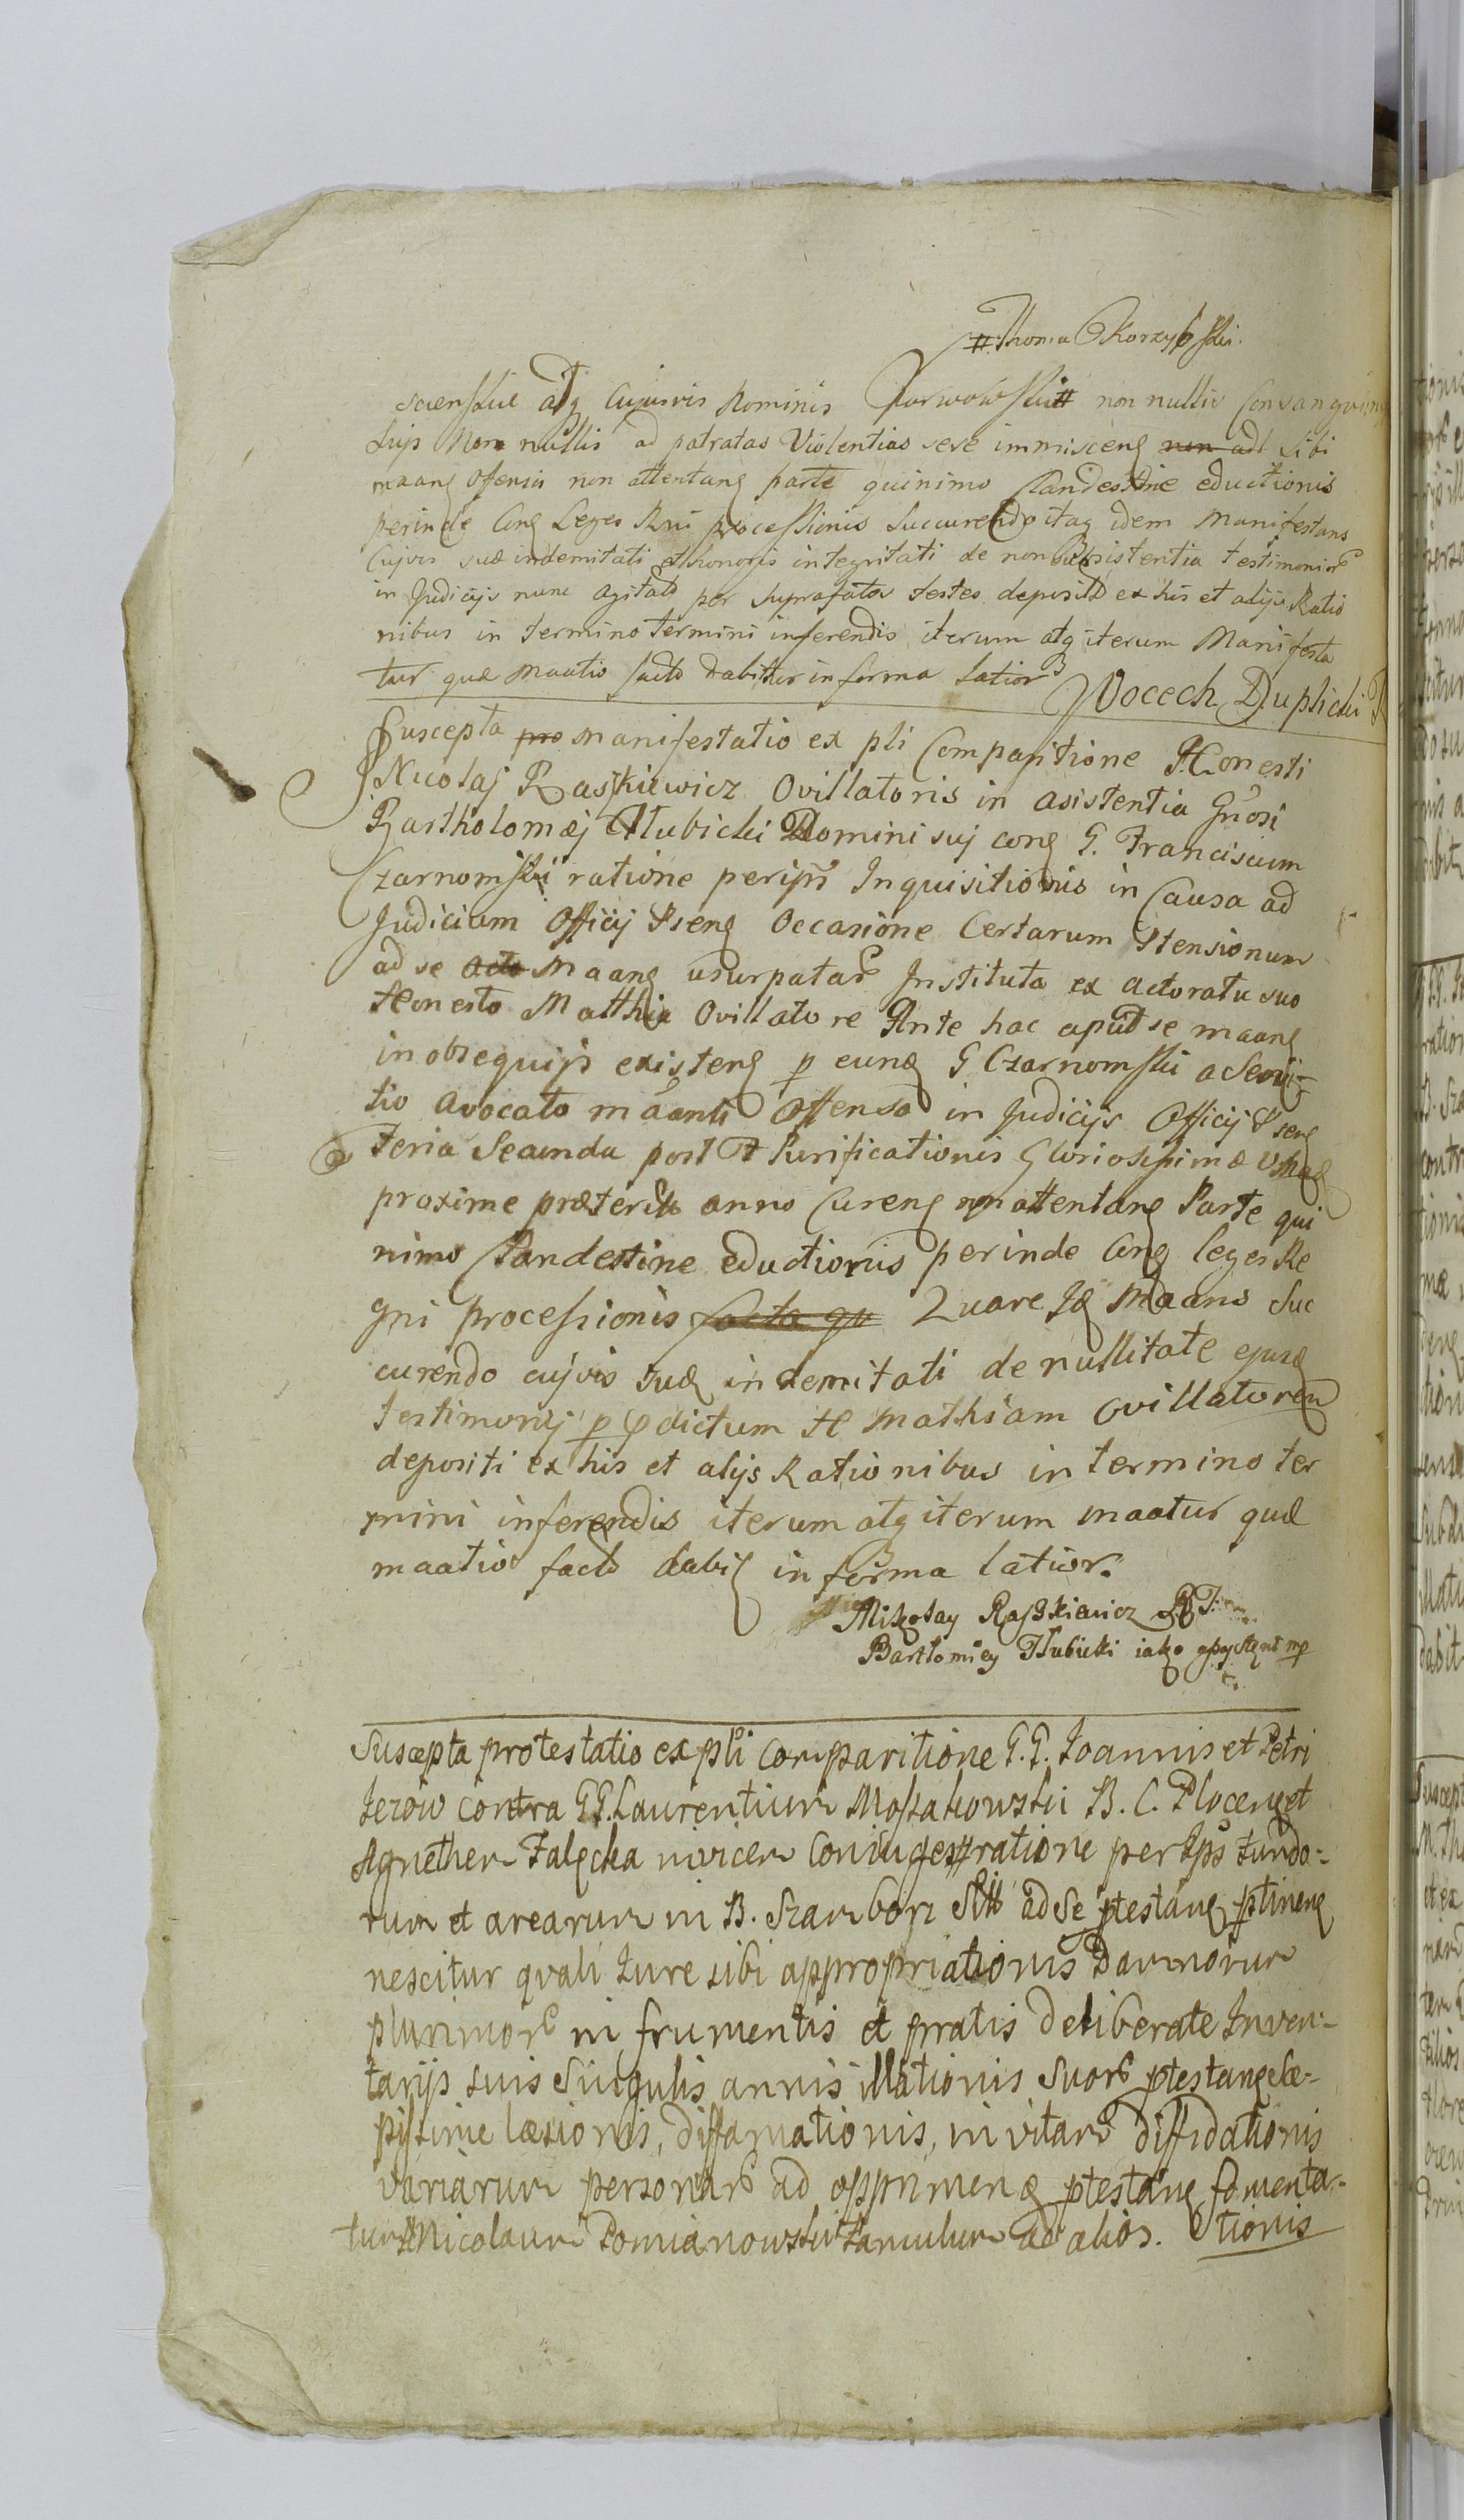 # Thoma Skorzybski.
scienskie atq Cujusvis Hominis Parwowski # non nullis Consangvin
suis Non nullis ad patratas Violentias sese immisceng non adl sibi
maang ofensis non attentang parte quinimo Clandestine eductionis
perinde Cong Leges Rni processionis Succurendo itaq idem Manifestans
Cujvis suæ indemnitati et honoris integritati de non subsistentia testimonior
in Judicijs nunc agitats per suprafatos testes deposit ex his et alijs Ratio
nibus in termino termini inferendis iterum atq iterum Manifesta
tur quæ maatio facto dabitur in forma latior
Wocech Duplicki
Suscepta pro manifestatio ex pli Comparitione Honesti
Nicolaj Raszkiewicz Ovillatoris in asistentia Gnosi
Bartholomæj Hubicki Domini suj cong G. Franciscum
Czarnomski ratione peripsi Inquisitionis in Causa ad
Judicium Officij Pseng Occasione Certarum Ptensionum
ad se acto maang usurpatar Instituta ex actoratu suo
Honesto Matthia Ovillatore Ante hac aput se maang
in obsequijs existeng p eunq G Czarnomski a Servi-
tio avocato maanti Offenso in Judicijs Officij Pseng
Feria Secunda post F Purificationis Gloriosissimæ V Mag
proxime præterito anno Cureng non attentang Parte qui
nimo Clandestine eductionis perinde Cong leges Re
gni processionis facta qu Quare Id Maans Suc
curendo cujvis suæ indemitati de nullitate ejusq
testimonij p pdictum H Mathiam Ovillatorem
depositi ex his et alijs Rationibus in termino ter
mini inferendis iterum atq iterum maatur quæ
maatio facto dabit in forma latior.
Mikołay Raszkiewicz
Bartłomiey Hubicki iako assystent mp
Suscepta protestatio ex pli Comparitione G.G. Joannis et Petri
Jezow contra GG. Laurentium Mossakowski B. C. Ploceng et
Agnethem Falęcka invicem Coniuges # ratione per Ips fundo-
rum et arearum in B. Szamborz Sitt ad se ptestang ptineng
nescitur qvali Jure sibi appropriationis Damnorum
plurimor in frumentis et pratis deliberate Inven-
tarijs suis Singulis annis illationis Suor ptestang sæ-
pissime læsionis, diffamationis, in vitam diffidationis
variarum personar ad opprimeng ptestang fomenta-
tur # Nicolaum Domianowski famulum ad alios. tionis